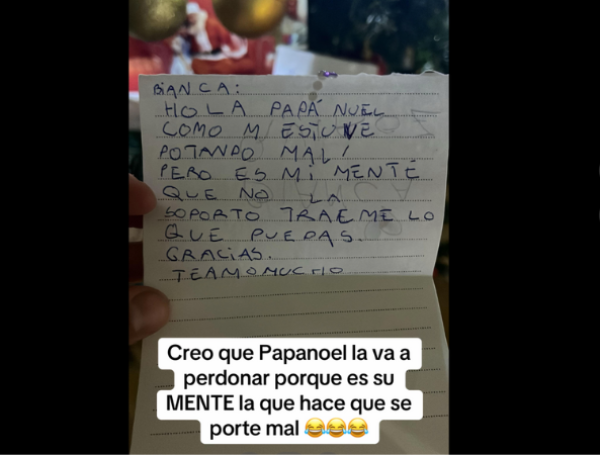 BIANCA:
HOLA PAPÁ NUEL
COMO M ESTUVE
POTANDO MAL
PERO ES MI MENTE
QUE NO LA
SOPORTO TRAEME LO
QUE PUEDAS.
GRACIAS.
TEAMOMUCHO
Creo que Papanoel la va a
perdonar porque es su
MENTE la que hace que se
porte mal 😂😂😂